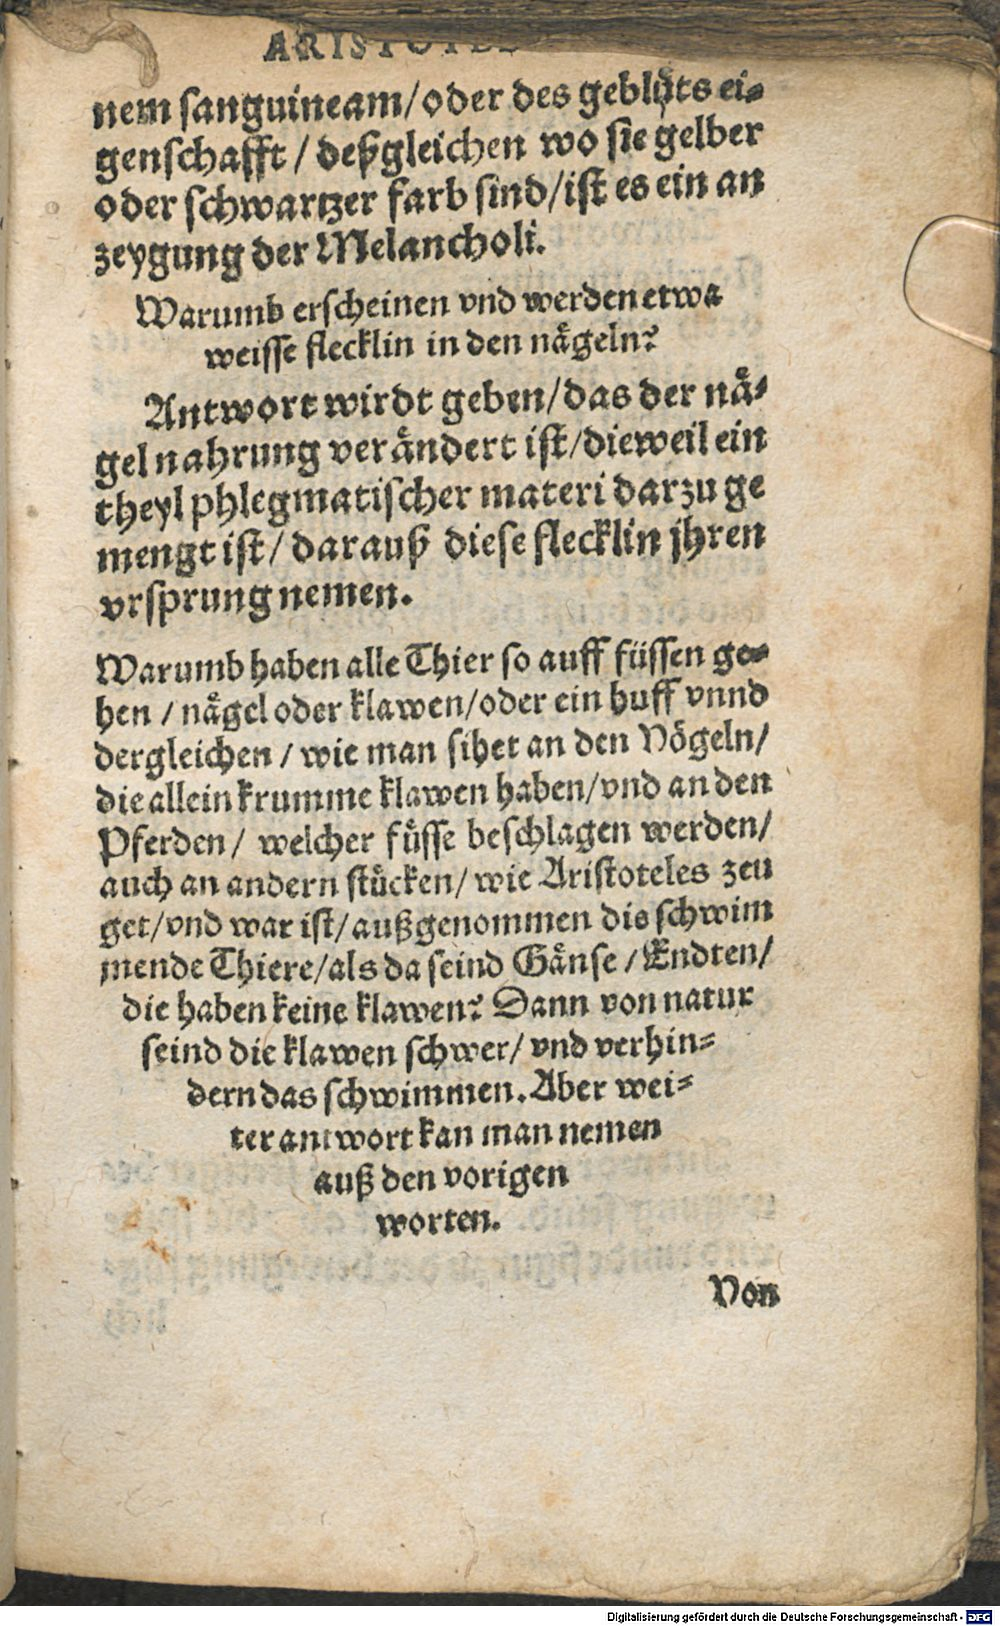 ARISTOTEL
nem sanguineam/oder des geblůts ei-
genschafft / deßgleichen wo sie gelber
oder schwartzer farb sind/ist es ein an
zeygung der Melancholi.
Warumb erscheinen vnd werden etwa
weisse flecklin in den nägeln?
Antwort wirdt geben/das der nä-
gel nahrung verändert ist/dieweil ein
theyl phlegmatischer materi darzu ge
mengt ist/ darauß diese flecklin jhren
vrsprung nemen.
Warumb haben alle Thier so auff füssen ge-
hen / nägel oder klawen/oder ein huff vnnd
dergleichen / wie man sihet an den Vögeln/
die allein krumme klawen haben/vnd an den
Pferden/ welcher füsse beschlagen werden/
auch an andern stücken/ wie Aristoteles zeu
get/vnd war ist/außgenommen die schwim
mende Thiere/als da seind Gänse/Endten/
die haben keine klawen? Dann von natur
seind die klawen schwer/ vnd verhin-
dern das schwimmen. Aber wei-
ter antwort kan man nemen
auß den vorigen
worten.
Von
Digitalisierung gefördert durch die Deutsche Forschungsgemeinschaft - DFG